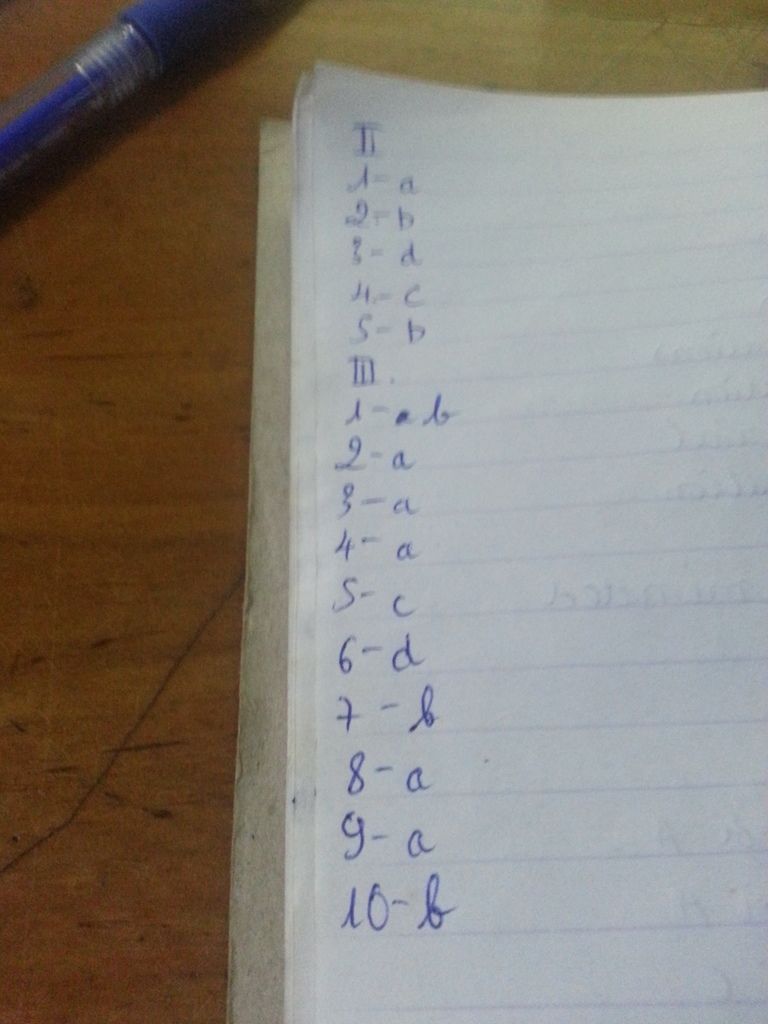 II
1- a
2- b
3- d
4- c
5- b
III.
1- b
2- a
3- a
4- a
5- c
6- d
7- b
8- a
9- a
10- b